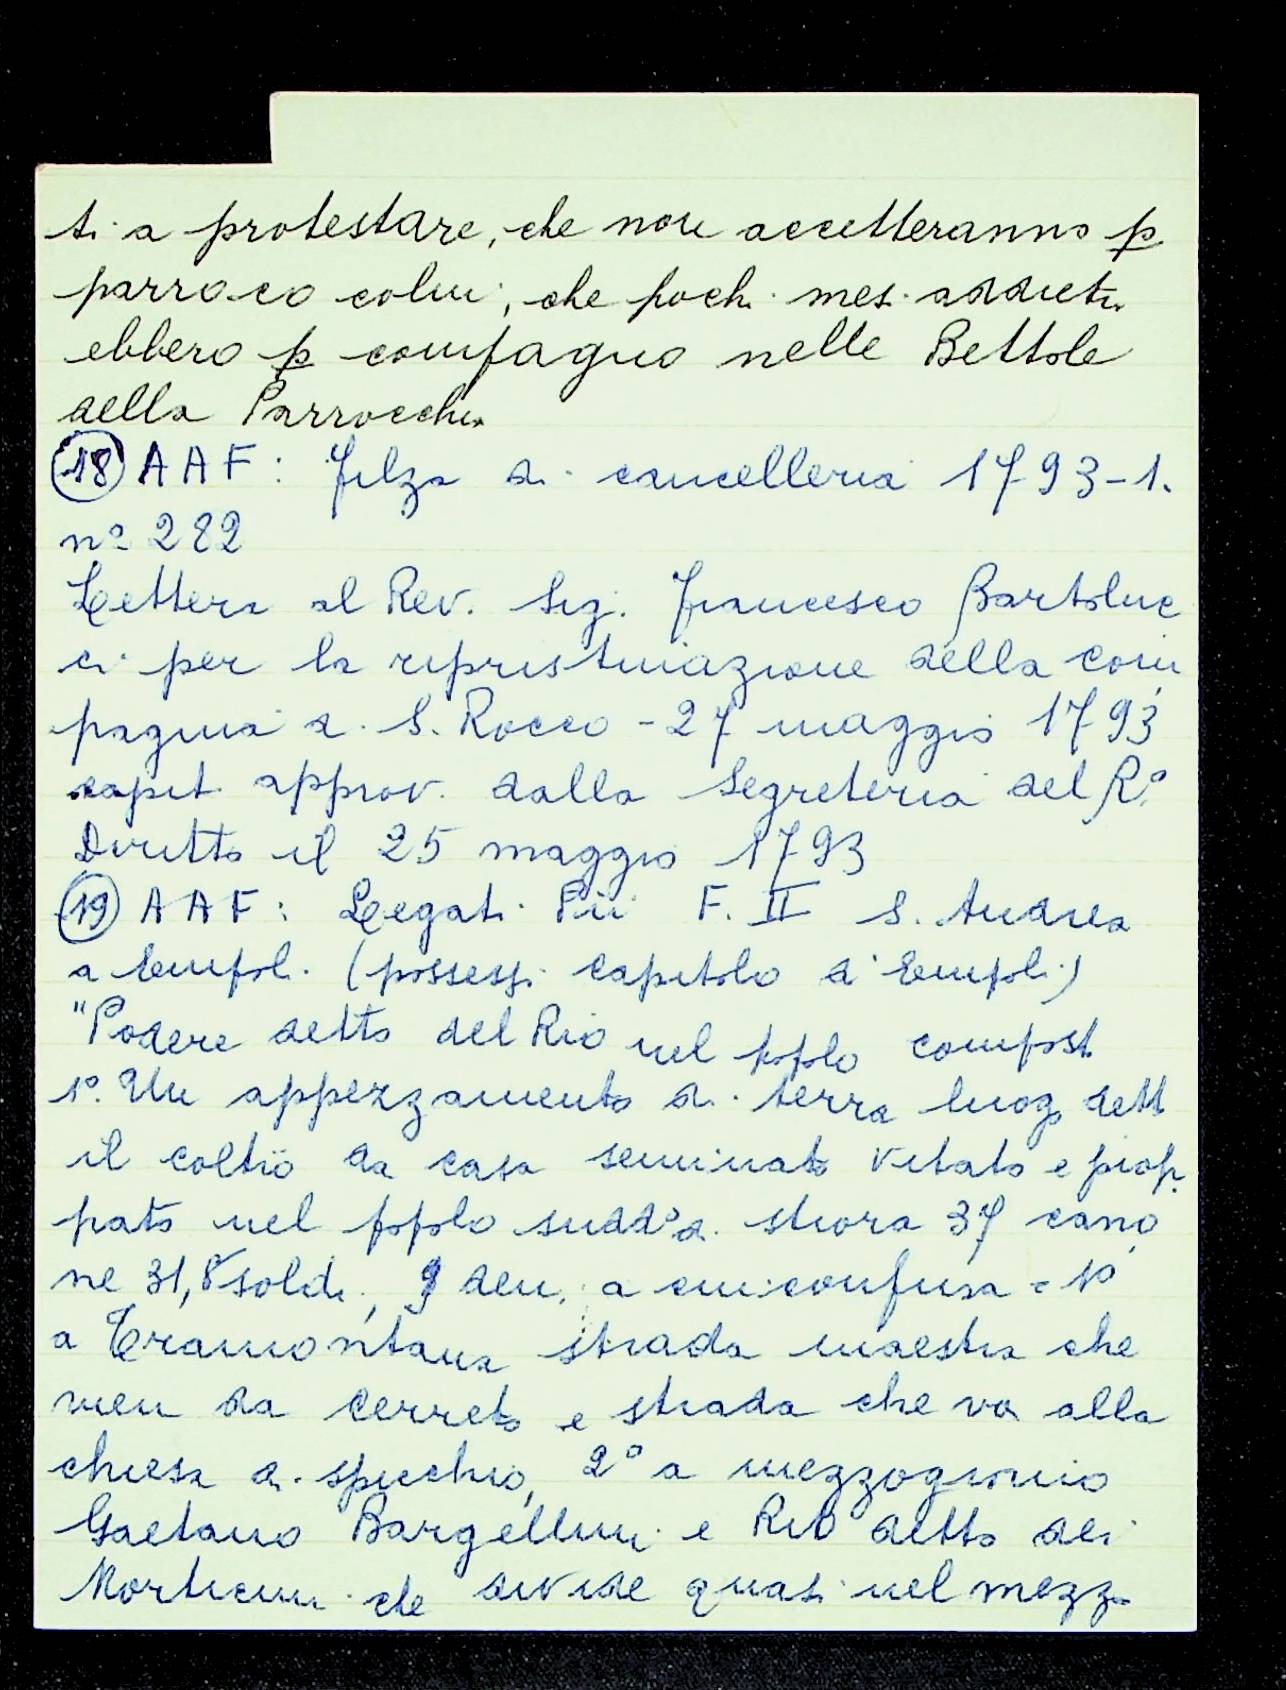 ti a protestare, che non accetteranno p
parroco colui, che pochi mesi addietro
ebbero p compagno nelle Bettole
della Parrocchia
18 AAF: Filza di cancelleria 1793-1.
nº 282
Lettera al Rev. Sig. Francesco Bartoluc
ci per la ripristinazione della com
pagnia di S. Rocco - 27 maggio 1793
capit. approv. dalla Segreteria del Rº
Diritto il 25 maggio 1793
19 AAF: Legati Pii F. II S. Andrea
a Empoli (possessi capitolo d'Empoli)
"Podere detto del Rio nel popolo compost
1º. Un appezzamento di terra luogo dett
il coltio da casa seminato vitato e piop
pato nel popolo sudd° di stiora 37 canno
ne 31, 8 soldi, 9 den. a cui confina = 1º
a Tramontana strada maestra che
vien da Cerreto e strada che va alla
chiesa di spicchio, 2º a mezzogiorno
Gaetano Bargellini e Rio detto dei
Morticini che divide quasi nel mezzo